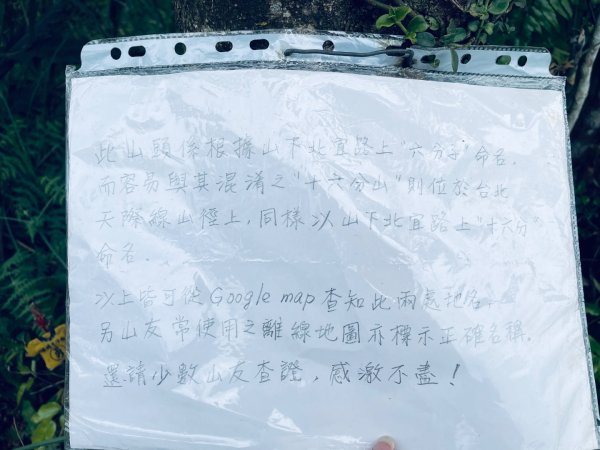 此山頭係根據山下北宜路上"六分子"命名.
而容易與其混淆之"十六分山"則位於台北
天際線山徑上,同樣以山下北宜路上"十六分"
命名.
以上皆可從Google map查知此兩處地名.
另山友常使用之離線地圖亦標示正確名稱.
還請少數山友查證,感激不盡!